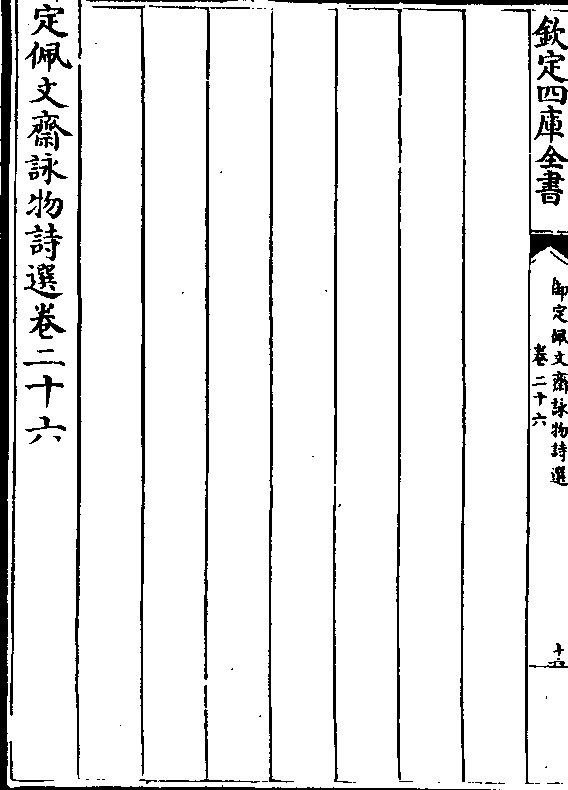 欽定四庫全書
御定佩文齋詠物詩選
卷二十六
定佩文齋詠物詩選卷二十六